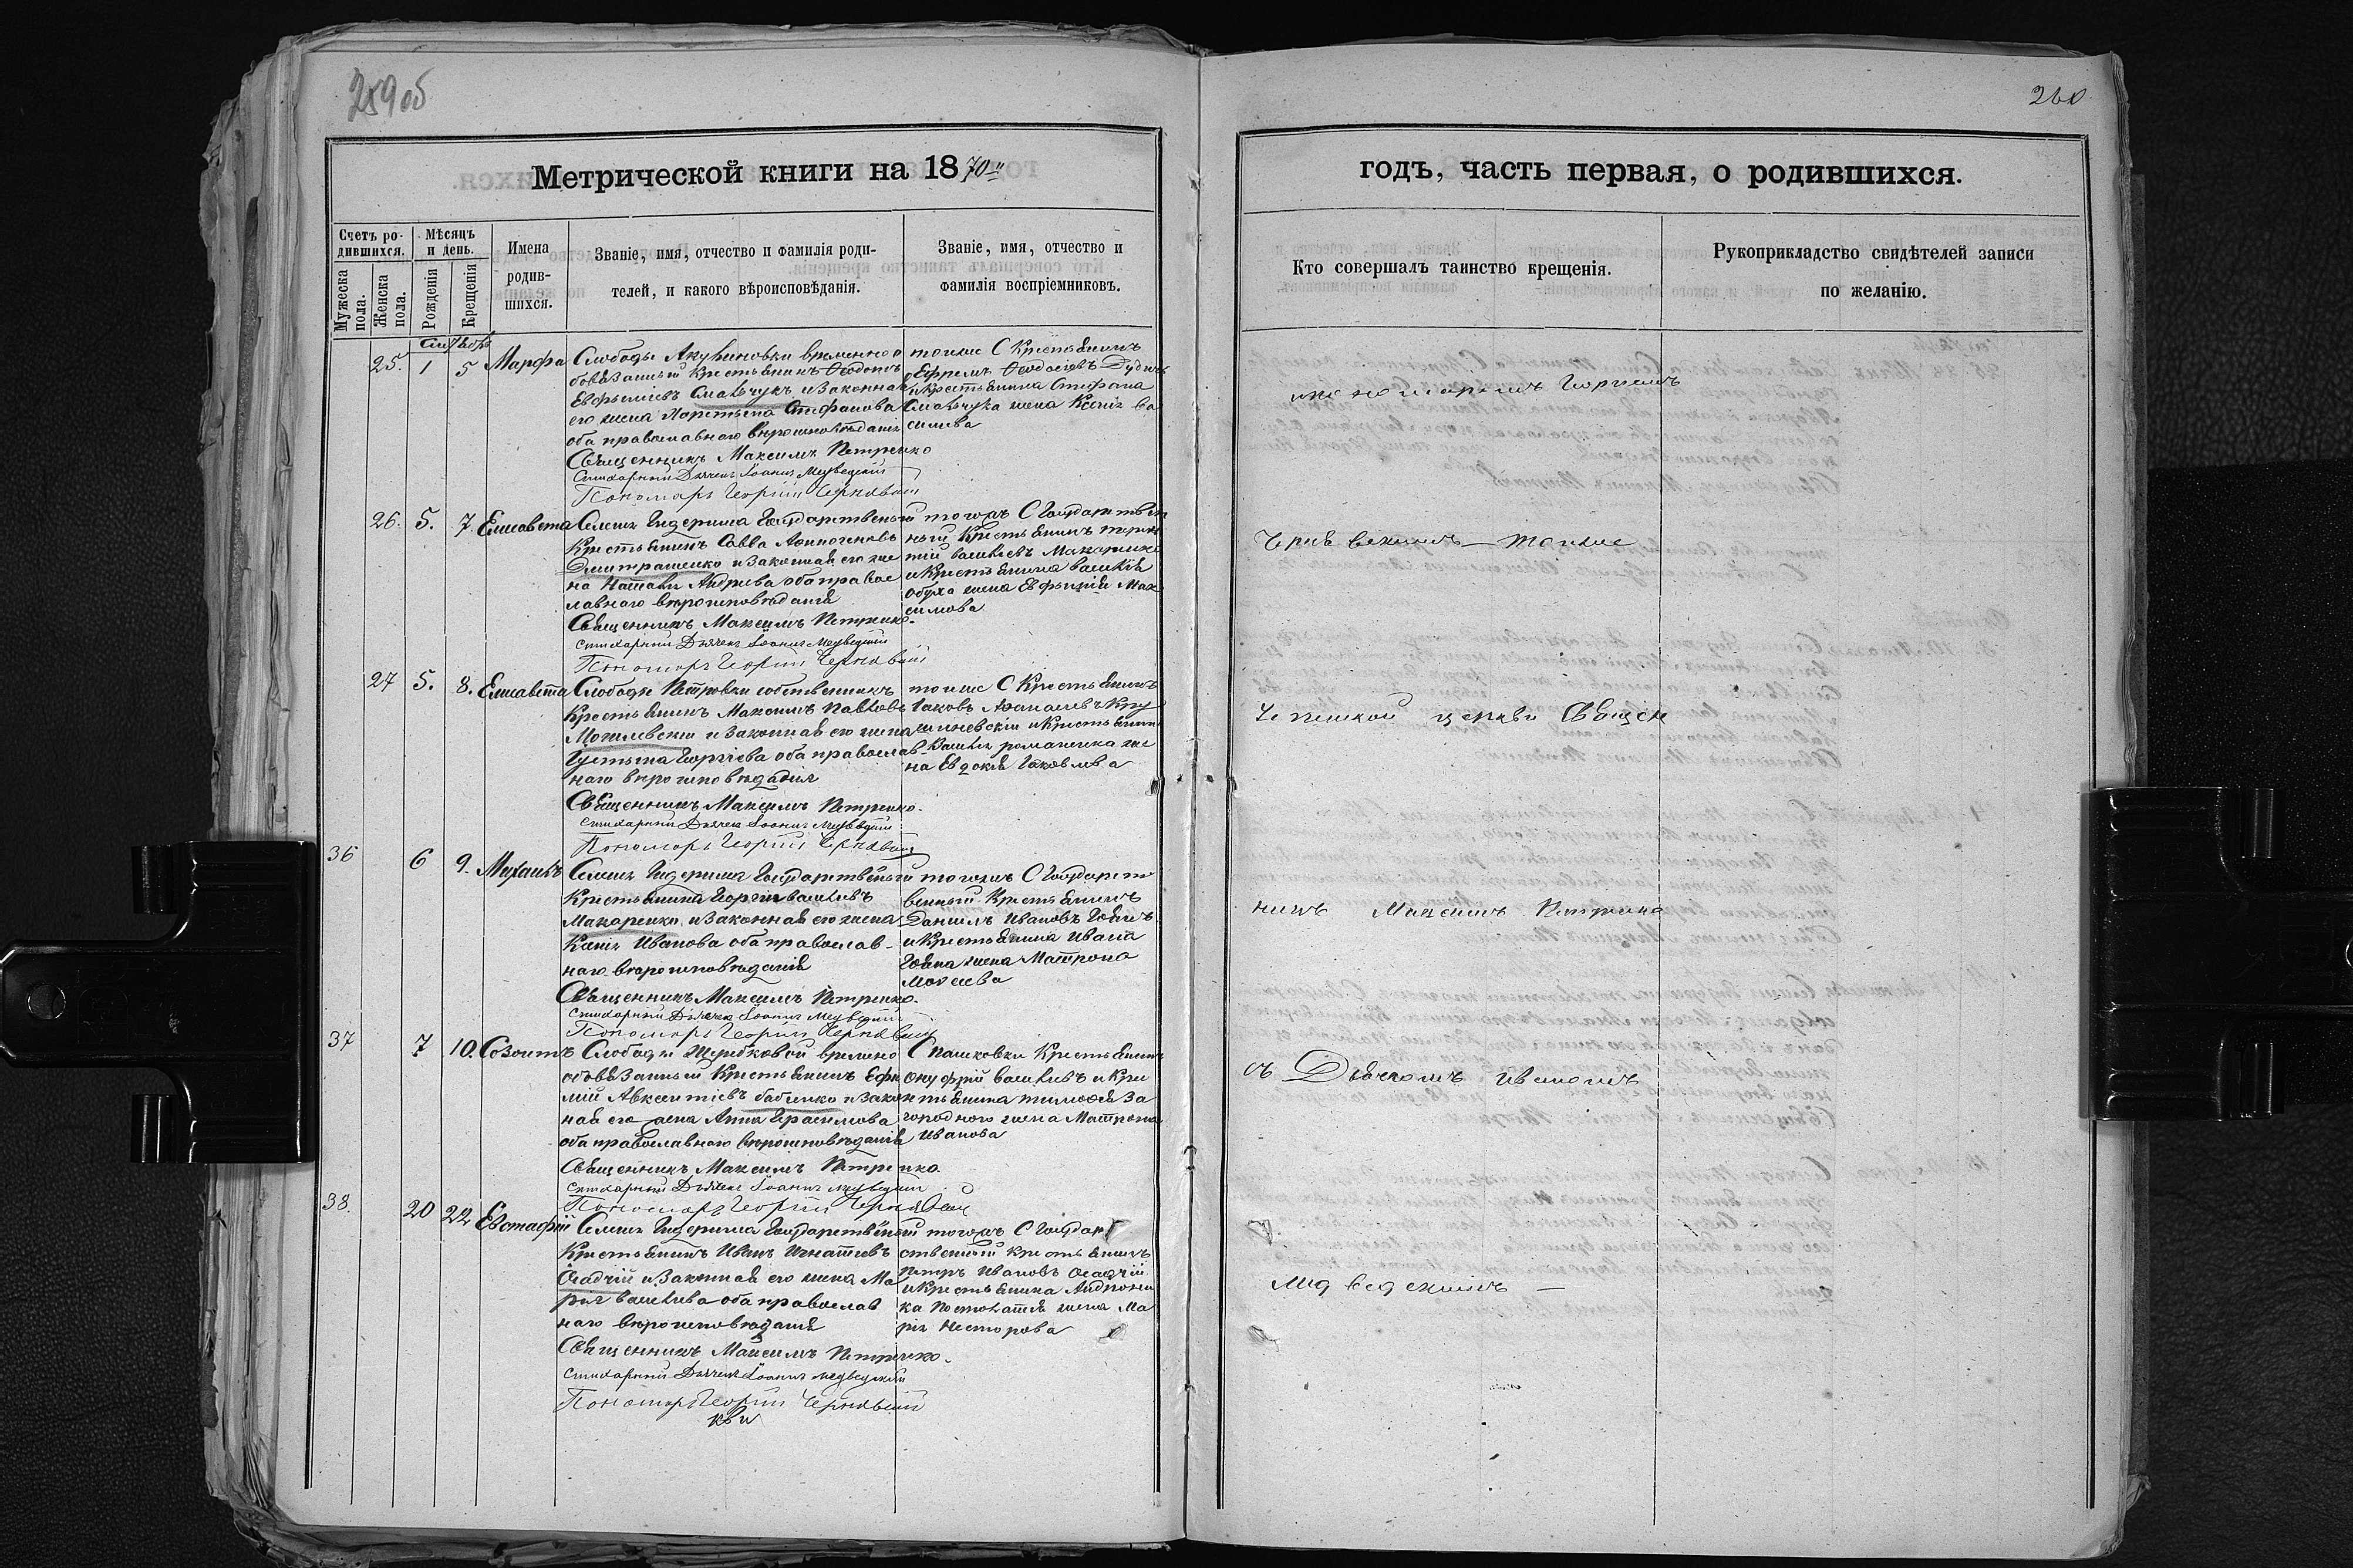 259 об
260
Метрической книги на 1870й
годъ, часть первая, о родившихся.
Счетъ родившихся.
Мужеска пола.
Женска пола.
Мѣсяцъ и день.
Рожденія
Крещенія
Имена родившихся.
Званіе, имя, отчество и фамилія родителей, и какого вѣроисповѣданія.
Званіе, имя, отчество и фамилія воспріемниковъ.
Кто совершалъ таинство крещенія.
Рукоприкладство свидѣтелей записи по желанію.
25. 1 5 Марфа
Слободы временно о
бовязанный крестьянинъ Ѳеодотъ
Евфимиевъ и законная
его жена Стефанова
оба православнаго вѣроисповѣданія
Священникъ Максимъ Петренко
Стихарный Дьячекъ Іоаннъ Медведскій
Пономарь Георгій Чернявскій
тоиже С крестьянинъ
Ефремъ Ѳеодосіевъ
и крестьянина Стефана
жена Ксенія Ва
силиева
26. 5. 7. Елисавета
Селенія Гидерима Государственный
Крестьянинъ Савва
Дмитрашенко и законная его же
на Наталія Андреева оба право
славнаго вѣроисповѣданія
Священникъ Максимъ Петренко.
Стихарный Дьячекъ Іоаннъ Медведскій
Пономарь Георгій Чернявскій
тогожъ С Государствен
ный Крестьянинъ
Васильевъ Макаренко
и крестьянина Василія
Обуха жена Евфимія Мак
симова
27 5. 8. Елисавета
Слободы Петровки собственникъ
Крестьянинъ Максимъ Павловъ
Могилевскій и законная его жена
Георгіева оба православ
наго вѣроисповѣданія
Священникъ Максимъ Петренко.
Стихарный Дьячекъ Іоаннъ Медведскій
Пономарь Георгій Чернявскій
тоиже С Крестьянинъ
Іаковъ
и Крестьянина
Василія Романенка же
на Евдокія Іаковлева
36 6 9. Михаилъ
Селенія Гидерима Государственный
Крестьянинъ Георгій Васильевъ
Макаренко и законная его жена
Ксенія Иванова оба православ-
наго вѣроисповѣданія
Священникъ Максимъ Петренко.
Стихарный Дьячекъ Іоаннъ Медведскій
Пономарь Георгій Чернявскій
тогожъ С Государст
венный Крестьянинъ
Даніилъ Ивановъ
и Крестьянина Ивана
жена Матрона
Моѵсеева
37 7 10. Созонтъ
Слободы Щербковой временно
обовязанный Крестьянинъ Ефи
мій Авксентіевъ Бабенко и закон
ная его жена Анна Герасимова
оба православнаго вѣроисповѣданія
Священникъ Максимъ Петренко
Стихарный Дьячекъ Іоаннъ Медведскій
Пономарь Георгій Чернявскій
С Пашковки Крестьянинъ
Онуфрій Васильевъ и кре
стьянина Тимоѳея За
городнаго жена Матрона
Иванова
38. 20 22 Евстафій
Селенія Гидерима Государственный
Крестьянинъ Иванъ Игнатіевъ
Осадчій и законная его жена Ма
рія Васильева оба православ
наго вѣроисповѣданія
Священникъ Максимъ Петренко.
Стихарный Дьячекъ Іоаннъ Медведскій
Пономарь Георгій Чернявскій
тогожъ С Государ
ственный крестьянинъ
Петръ Ивановъ Осадчій
и Крестьянина Андрони
ка жена Ма
рія Несторова
и пономаремъ Георгіемъ
Чернявскимъ — тоиже
церкви Священ
никъ Максимъ Петренко
съ Дьячкомъ Иваномъ
Медведскимъ —